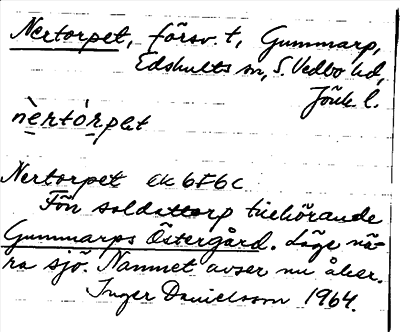 Nertorpet, försv. t, Gummarp,
Edshults sn, S. Vedbo hd,
Jönk l.
nèrtórpet
Nertorpet ek 6F6c
Fön soldattorp tillhörande
Gummarps Östergård. Läge nä-
ra sjö. Namnet avser nu åker.
Inger Danielsson 1964.